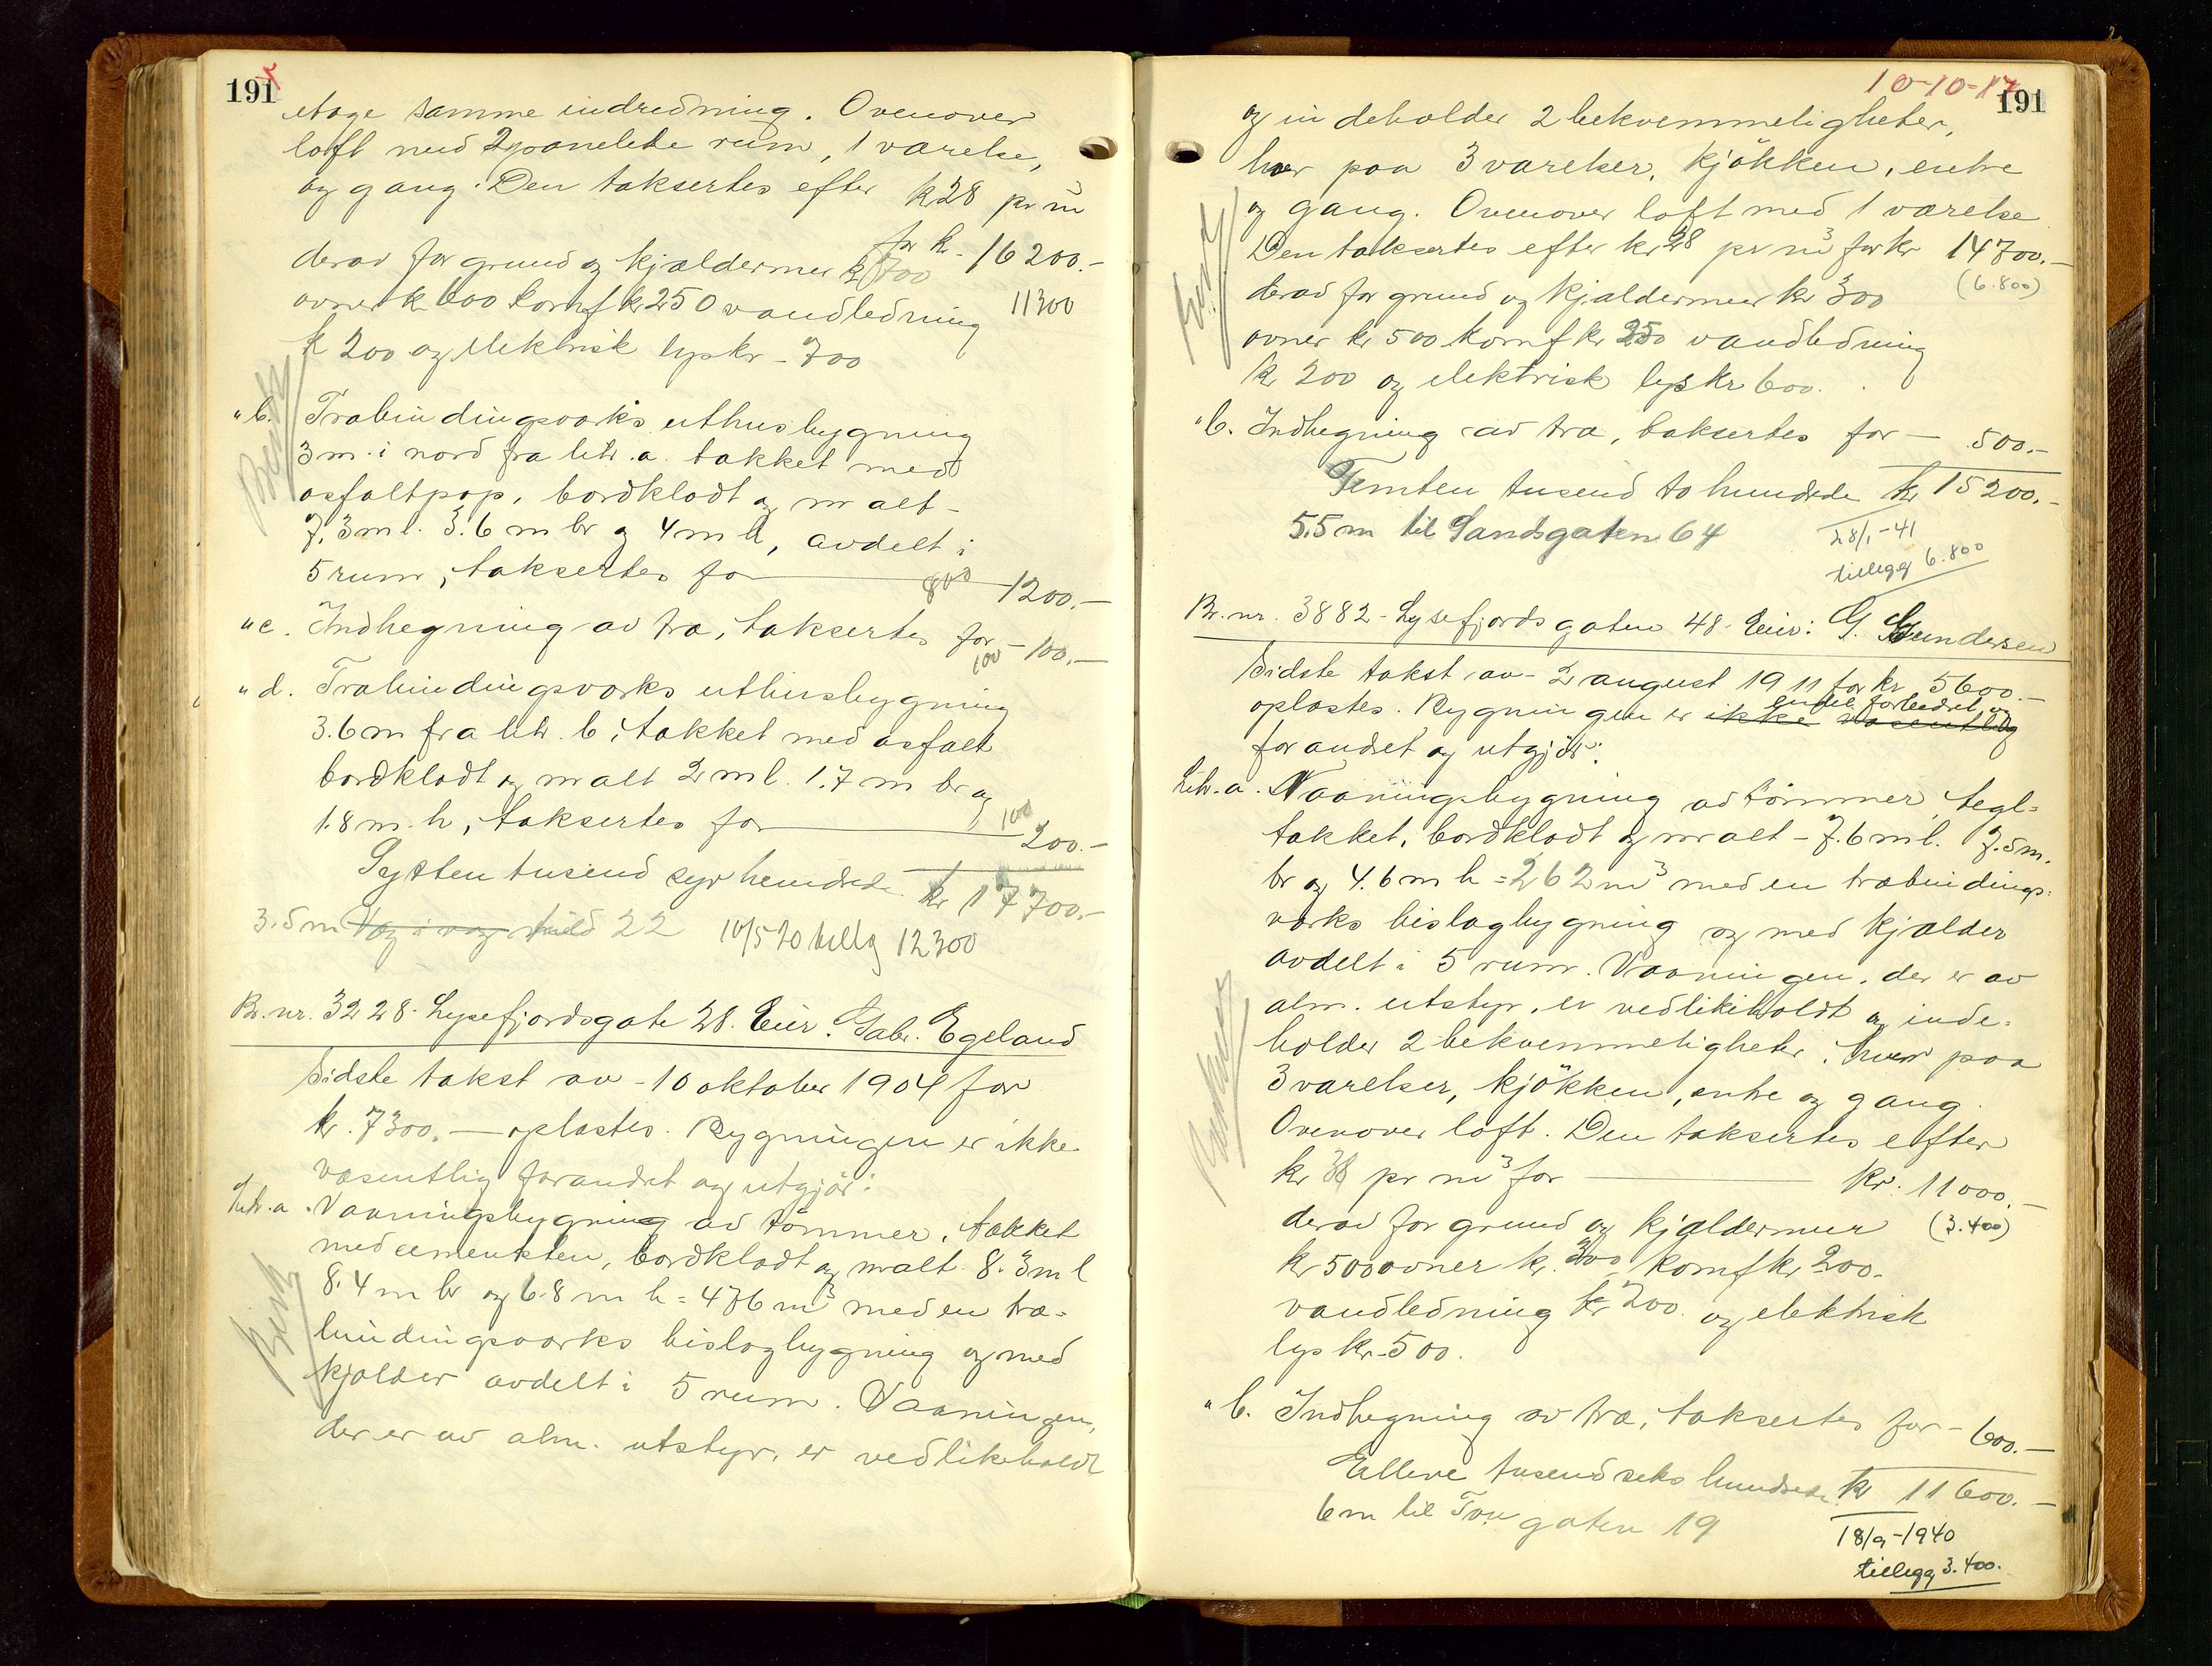 191
etage samme indredning. Ovenover
loft med 2 panelede rum, 1 værelse,
og gang. Den taksertes efter kr 28 pr m³
for kr. 16200.-
derav for grund og kjældermur kr 700
ovner kr 600 komf kr 250 vandledning 11300
kr 200 og elektrisk lys kr - 700
" b. Træbindingsværks uthusbygning
3 m. i nord fra litr. a. tækket med
asfaltpap, bordklædt og malt -
7.3 m l. 3.6 m br og 4 m h, avdelt i
5 rum, taksertes for 800 1200.-
" c. Indhegning av træ, taksertes for - 100.-
100
" d. Træbindingsværks uthusbygning
3.6 m fra litr. b, tækket med asfalt
bordklædt og malt 2 m l. 1.7 m br og
1.8 m. h, taksertes for 100 200.-
Sytten tusend syv hundrede kr 17700.-
3.5 m Væg i væg med 22 10/5 20 tillæg 12300
Br. nr. 3228 - Lysefjordsgate 28. Eier: Gabr. Egeland
Sidste takst av - 10 oktober 1904 for
kr. 7300.- oplæstes. Bygningen er ikke
væsentlig forandret og utgjör:
Litr. a. Vaaningsbygning av tömmer, tækket
med cementsten, bordklædt og malt 8.3 m l
8.4 m br og 6.8 m h = 476 m³ med en træ-
bindingsværks bislagbygning og med
kjælder avdelt i 5 rum. Vaaningen,
der er av alm. utstyr, er vedlikeholdt
10-10-17
191
og indeholder 2 bekvemmeligheter,
hver paa 3 værelser, kjökken, entre
og gang. Ovenover loft med 1 værelse
Den taksertes efter kr 28 pr m³ for kr 14700.-
(6.800)
derav for grund og kjældermur kr 300
ovner kr 500 komf kr 250 vandledning
kr 200 og elektrisk lys kr 600.
" b. Indhegning av træ, taksertes for - 500.-
Femten tusend to hundrede kr 15200.-
5.5 m til Sandsgaten 64
28/1-41
tillegg 6.800
Br. nr. 3882 - Lysefjordsgaten 48. Eier: G. Gundersen
Sidste takst av - 2 august 1911 for kr 5600.-
endel forbedret og
oplæstes. Bygningen er ikke væsentlig
forandret og utgjör:
Litr. a. Vaaningsbygning av tömmer, tegl-
tækket, bordklædt og malt - 7.6 m l. 7.5 m.
br og 4.6 m h = 262 m³ med en træbindings-
værks bislagbygning og med kjælder
avdelt i 5 rum. Vaaningen, der er av
alm. utstyr, er vedlikeholdt og inde-
holder 2 bekvemmeligheter, hver paa
3 værelser, kjökken, entre og gang.
Ovenover loft. Den taksertes efter
kr 38 pr m³ for kr. 11000.-
derav for grund og kjældermur (3.400)
kr 500 ovner kr. 300 komf kr 200.
vandledning kr 200. og elektrisk
lys kr. 500.
" b. Indhegning av træ, taksertes for - 600.-
Elleve tusend seks hundrede kr 11600.-
6 m til Tou gaten 19
18/9-1940
tillegg 3.400.